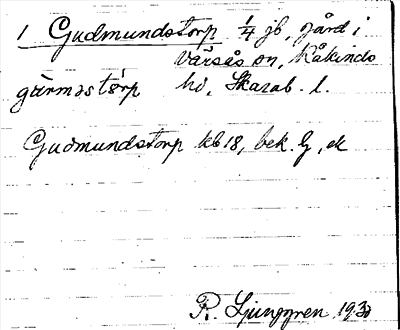 1 Gudmundstorp 1/4 jb, gård i
Varsås sn, Kåkinds
gürməstörp hd, Skarab. l.
Gudmundstorp kb 18, bek. G, ek
R. Ljunggren 1930